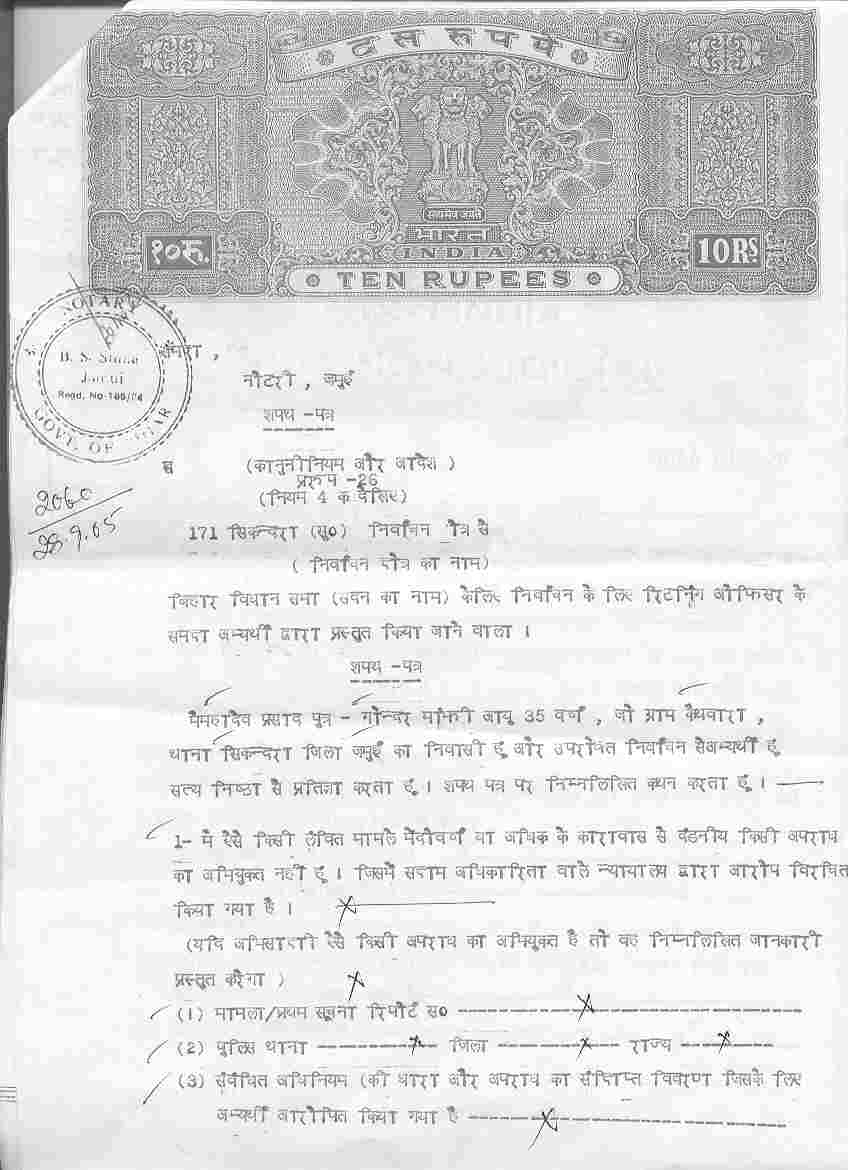 दस रूपये
सत्यमेव जयते
भारत
INDIA
१०रु.
10RS
TEN RUPEES
NOTARY
B. S. Sinha
Jamui
Regd. No-
GOVT. OF BIHAR
2060
28.9.05
नोटरी , जमुई
शपथ -पत्र
(कानुनीनियम और आदेश )
प्ररुप -26
(नियम 4 क देखिए)
171 सिकन्दरा (सु0) निर्वाचन क्षेत्र से
( निर्वाचन क्षेत्र का नाम)
बिहार विधान सभा (सदन का नाम) केलिए निर्वाचन के लिए रिटर्निंग ऑफिसर के
समक्ष अभ्यर्थी द्वारा प्रस्तुत किया जाने वाला ।
शपथ -पत्र
मैमहादेव प्रसाद पुत्र - गोन्दर मांझी आयु 35 वर्ष , जो ग्राम कैथवारा ,
थाना सिकन्दरा जिला जमुई का निवासी हूं और उपरोक्त निर्वाचन सेअभ्यर्थी हूं
सत्य निष्ठा से प्रतिज्ञा करता हूं । शपथ पत्र पर निम्नलिखित कथन करता हूं ।
1- मै ऐसे किसी लंवित मामले मेंदोवर्ष या अधिक के कारावास से दंडनीय किसी अपराध
का अभियुक्त नहीं हूं । जिसमें सक्षम अधिकारिता वाले न्यायालय द्वारा आरोप विरचित
किया गया है ।
(यदि अभिसाक्षी ऐसे किसी अपराध का अभियुक्त है तो वह निम्नलिखित जानकारी
प्रस्तुत करेगा )
(1) मामला/प्रथम सूचना रिपोर्ट स0 ------------------------------
(2) पुलिस थाना ---------- जिला ------------ राज्य -----------
(3) संवंधित अधिनियम (की धारा और अपराध का संक्षिप्त विवरण जिसके लिए
अभ्यर्थी आरोपित किया गया है ---------------------------